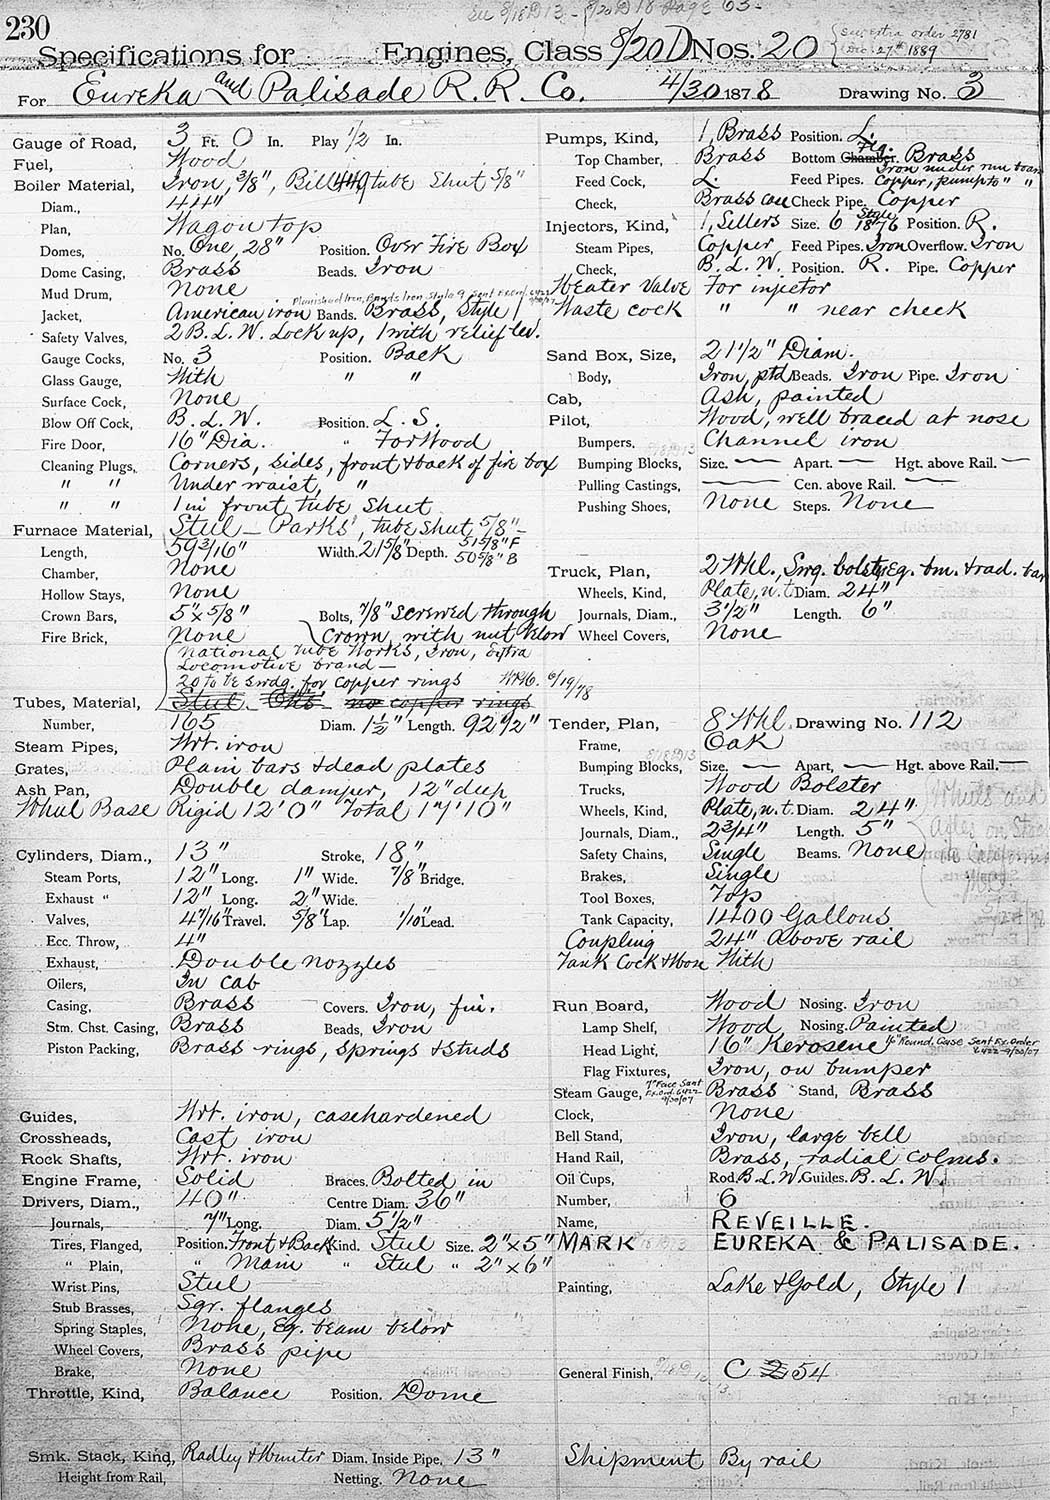 230
See 8/18D13 - 8/20D18 Page 63 -
Specifications for Engines, Class 8/20D Nos. 20 { See extra order 2781 Dec. 27th 1889
For Eureka and Palisade R. R. Co. 4/30 1878 Drawing No. 3
Gauge of Road, 3 Ft. 0 In. Play 1/2 In.
Fuel, Wood
Boiler Material, Iron, 3/8", tube Sheet 5/8"
Diam., 44"
Plan, Wagon top
Domes, No. One, 28" Position. Over Fire Box
Dome Casing, Brass Beads. Iron
Mud Drum, None
Planished Iron, Bands Iron Style 9 Sent Ex. Ord.
Jacket, American iron Bands. Brass, Style 1
Safety Valves, 2 B. L. W. Lock up, 1 with relief lev.
Gauge Cocks, No. 3 Position. Back
Glass Gauge, With " "
Surface Cock, None
Blow Off Cock, B. L. W. Position. L. S.
Fire Door, 16" Dia. " For Wood
Cleaning Plugs, Corners, sides, front & back of fire box
" " Under waist, "
" " 1 in front tube Sheet
Furnace Material, Steel - Parks', tube sheet 5/8"
Length, 59 3/16" Width. 21 5/8" Depth. 51 5/8" F 50 5/8" B
Chamber, None
Hollow Stays, None
Crown Bars, 5" x 5/8" Bolts, 7/8" screwed through
Fire Brick, None Crown, with nut below
National Tube Works, Iron, Extra
Locomotive brand -
20 to be swdg. for copper rings 6/19/78
Tubes, Material, Steel - Otis no copper rings
Number, 165 Diam. 1 1/2" Length. 92 1/2"
Steam Pipes, Wrt. iron
Grates, Plain bars & dead plates
Ash Pan, Double damper, 12" deep
Wheel Base Rigid 12' 0" Total 17' 10"
Cylinders, Diam., 13" Stroke, 18"
Steam Ports, 12" Long. 1" Wide. 7/8" Bridge.
Exhaust " 12" Long. 2" Wide.
Valves, 4 7/16" Travel. 5/8" Lap. 1/10" Lead.
Ecc. Throw, 4"
Exhaust, Double nozzles
Oilers, In cab
Casing, Brass Covers. Iron, fin.
Stm. Chst. Casing, Brass Beads, Iron
Piston Packing, Brass rings, springs & studs
Guides, Wrt. iron, casehardened
Crossheads, Cast iron
Rock Shafts, Wrt. iron
Engine Frame, Solid Braces. Bolted in
Drivers, Diam., 40" Centre Diam. 36"
Journals, 7" Long. Diam. 5 1/2"
Tires, Flanged, Position. Front & Back Kind. Steel Size. 2" x 5"
" Plain, " Main " Steel " 2" x 6"
Wrist Pins, Steel
Stub Brasses, Sqr. flanges
Spring Staples, None, Eq. beam below
Wheel Covers, Brass pipe
Brake, None
Throttle, Kind, Balance Position. Dome
Smk. Stack, Kind, Radley & Hunter Diam. Inside Pipe, 13"
Height from Rail, Netting. None
Pumps, Kind, 1, Brass Position. L.
Top Chamber, Brass Bottom Chamber. Fig. 1. Brass
Feed Cock, L. Feed Pipes. Iron under run board Copper, pump to " "
Check, Brass Check Pipe. Copper
Injectors, Kind, 1, Sellers Size. 6 Style 1876 Position. R.
Steam Pipes, Copper Feed Pipes. Iron Overflow. Iron
Check, B. L. W. Position. R. Pipe. Copper
Heater Valve For injector
Waste cock " " near check
Sand Box, Size, 21 1/2" Diam.
Body, Iron, ptd Beads. Iron Pipe. Iron
Cab, Ash, painted
Pilot, Wood, well braced at nose
Bumpers, Channel iron
Bumping Blocks, Size. — Apart. — Hgt. above Rail. —
Pulling Castings, — Cen. above Rail. —
Pushing Shoes, None Steps. None
Truck, Plan, 2 Whl., Swg. bolster, Eq. bm. & rad. bar
Wheels, Kind, Plate, w. t. Diam. 24"
Journals, Diam., 3 1/2" Length. 6"
Wheel Covers, None
Tender, Plan, 8 Whl. Drawing No. 112
Frame, Oak
Bumping Blocks, Size. — Apart, — Hgt. above Rail. —
Trucks, Wood Bolster
Wheels, Kind, Plate, w. t. Diam. 24"
Journals, Diam., 2 3/4" Length. 5"
Safety Chains, Single Beams. None
Wheels and
Axles on
in California
Brakes, Single
Tool Boxes, Top
Tank Capacity, 1400 Gallons
Coupling 24" above rail
Tank Cock & Hose With
Run Board, Wood Nosing. Iron
Lamp Shelf, Wood Nosing. Painted
Head Light, 16" Kerosene 16" Round, Case Sent Ex. Order 6422 - 9/30/07
Flag Fixtures, Iron, on bumper
Steam Gauge, 7" Face Sent Ex. Ord. 6422 9/30/07 Brass Stand, Brass
Clock, None
Bell Stand, Iron, large bell
Hand Rail, Brass, radial colms.
Oil Cups, Rod. B. L. W. Guides. B. L. W.
Number, 6
Name, REVEILLE.
MARK EUREKA & PALISADE.
Painting, Lake & Gold, Style 1
General Finish, C 2 54
Shipment By rail